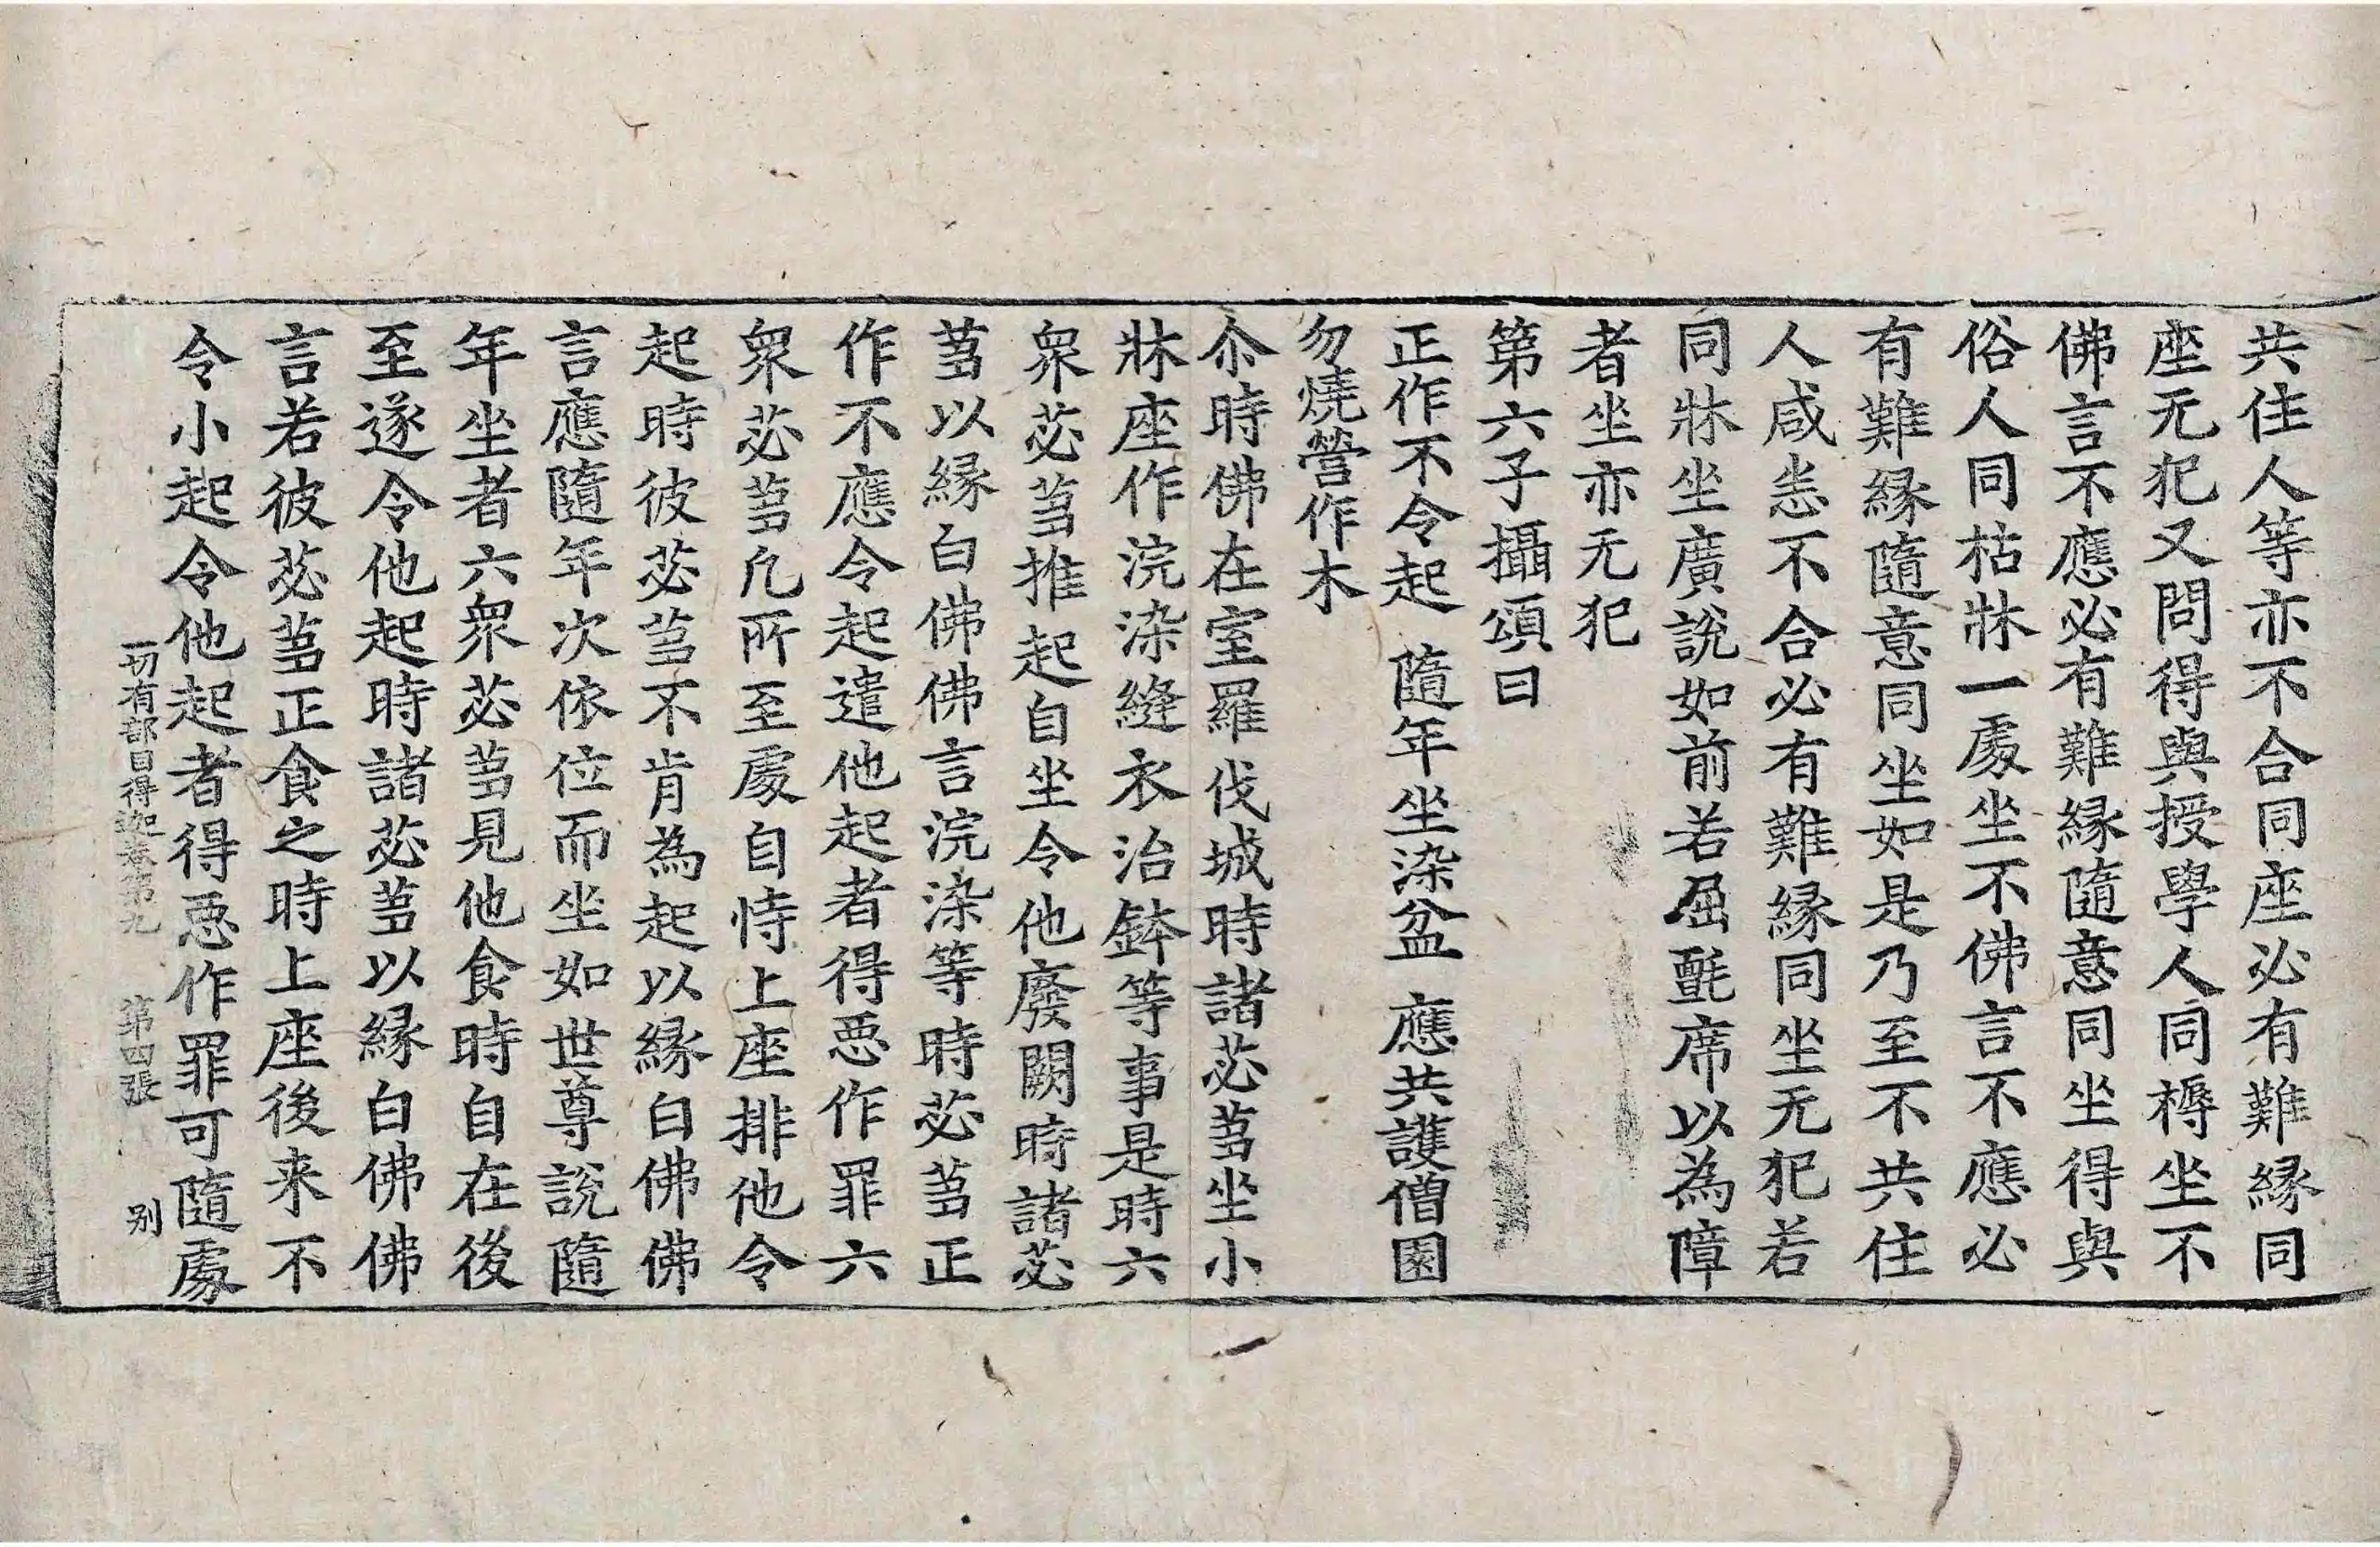 共住人等亦不合同座必有難縁同
座无犯又問得與授學人同槈坐不
佛言不應必有難縁隨意同坐得與
俗人同枯牀一處坐不佛言不應必
有難縁隨意同坐如是乃至不共住
人咸恙不合必有難縁同坐无犯若
同牀坐廣說如前若屈氈席以為障
者坐亦无犯
第六子攝頌曰
正作不令起 隨年坐染盆 應共護僧園
勿燒營作木
尒時佛在室羅伐城時諸苾芻坐小
牀座作浣染縫衣治鉢等事是時六
衆苾芻推起自坐令他廢闕時諸苾
芻以縁白佛佛言浣染等時苾芻正
作不應令起遣他起者得惡作罪六
衆苾芻凡所至處自恃上座排他令
起時彼苾芻不肯為起以縁白佛佛
言應隨年次依位而坐如世尊說隨
年坐者六衆苾芻見他食時自在後
至遂令他起時諸苾芻以縁白佛佛
言若彼苾芻正食之時上座後来不
令小起令他起者得惡作罪可隨處
一切有部目得迦卷第九 第四張 别